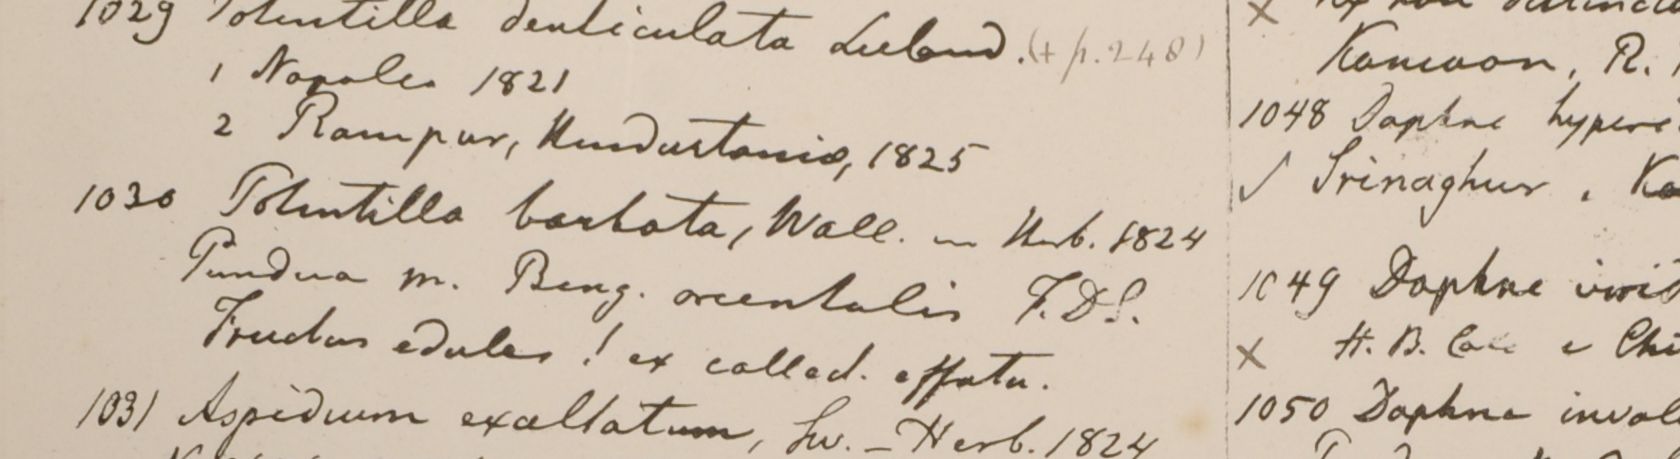 1029 Potentilla denticulata (+ p. 248)
1 Napalia 1821
2 Rampur, Hindustaniæ, 1825
1030 Potentilla barbata, Wall. in Herb. 1824
Pundua m. Beng. orientalis F. D. S.
Fructus edules! ex collect. effatu.
1031 Aspidium exaltatum, Sw. – Herb. 1824
x
Kamaon, R.
1048 Daphne hypere
✓ Srinaghur, Ka
1049 Daphne
x H. B. Calc e Chi
1050 Daphne invol